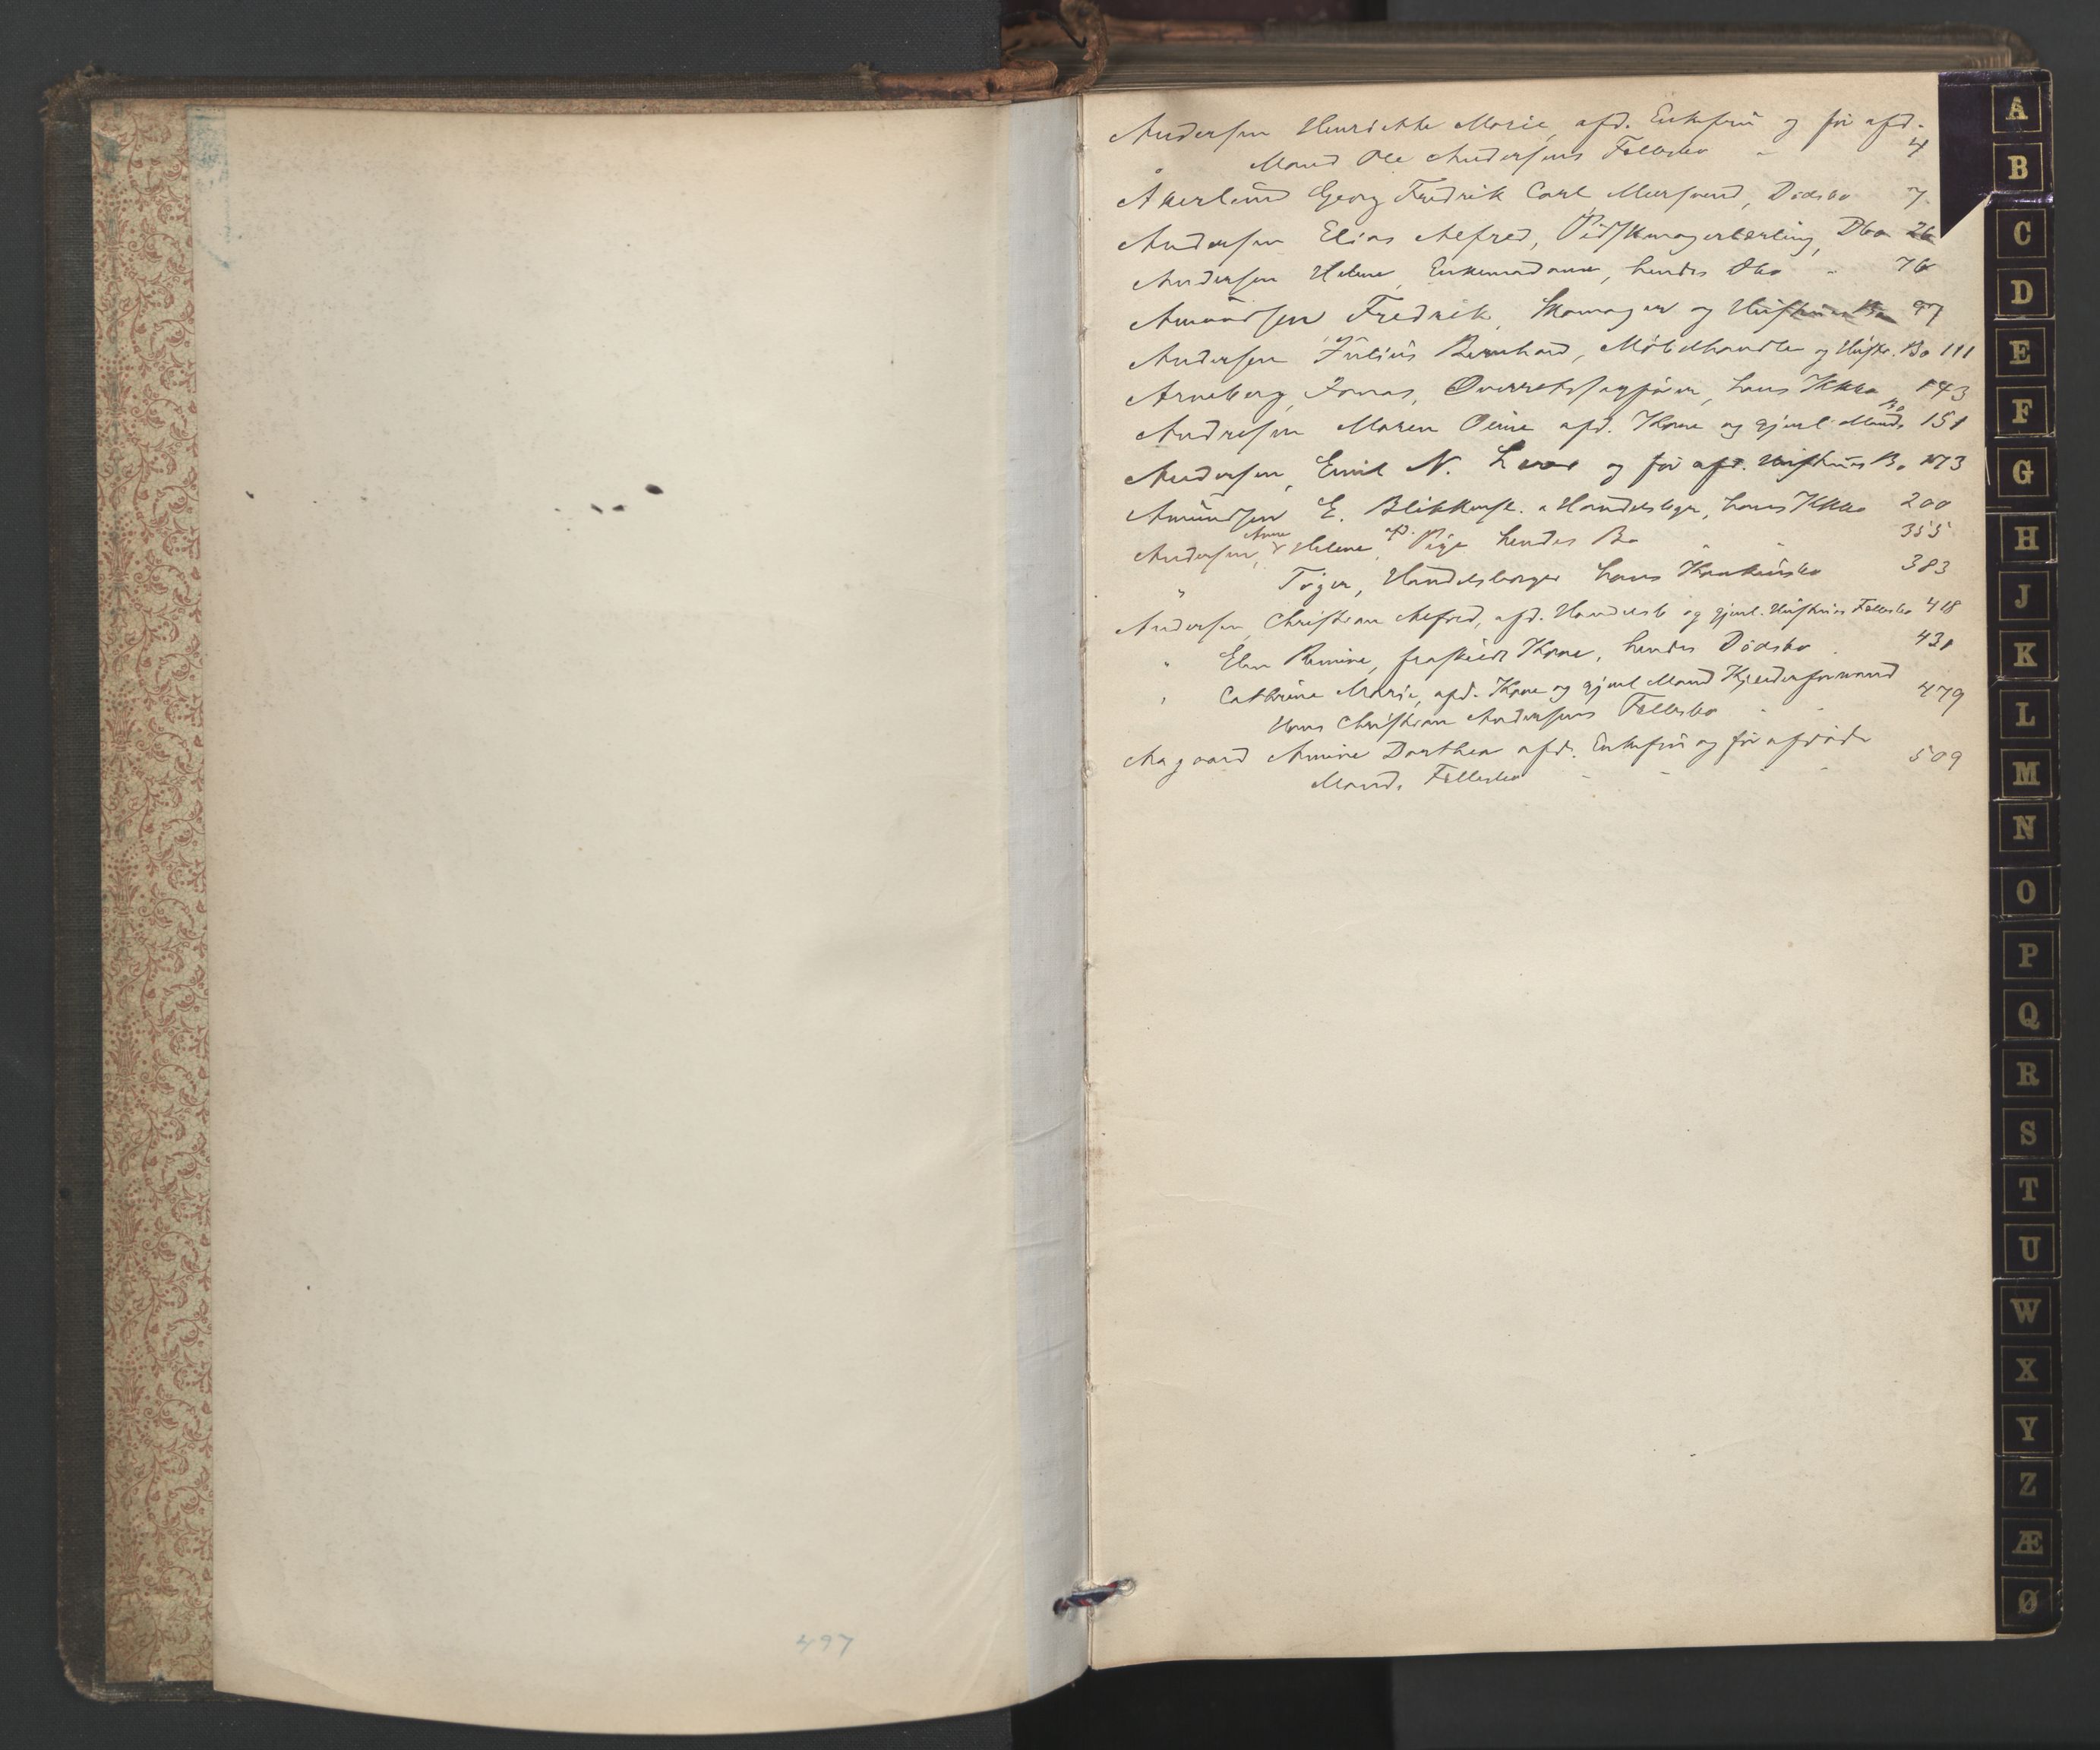 Andersen Henriette Marie, afd. Enkefru og før afd.
Mand Ole Andersens Fællesbo 4
Åkerlund Georg Fredrik Carl, Dødsbo 7
Andersen Elias Alfred, Pidskmagerlærling, Dbo 26
Andersen Helene, Enkemadame, hendes Dbo 76
Amundsen Fredrik, Skomager og Hustrus Bo 97
Andersen Julius Bernhard, Møbelhandler og Hustr. Bo 111
Arneberg, Jonas, Overretssagfører, hans Kkbo 143
Andresen Maren Oline afd. Kone og gjenl. Mands Bo 151
Andersen, Emil N. og før afd. Hustrus Bo 173
Amundsen E. Blikkensl. & Handelsbgr, hans Kkbo 200
Andersen, Anne Helene, afd. Pige hendes Bo 355
" Tøger, Handelsborger hans Konkursbo 383
Andersen Christian Alfred, afd. Handelsb og gjenl. Hustrus Fællesbo 418
" Elen Remine, fraskildt Kone, hendes Dødsbo 431
" Cathrine Marie, afd. Kone og gjenl Mand Kjelderformand
Hans Christian Andersens Fællesbo 479
Aagaard Amine Dorthea afd. Enkefru og før afdøde
Mands Fællesbo 509
497
A
B
C
D
E
F
G
H
J
K
L
M
N
O
P
Q
R
S
T
U
W
X
Y
Z
Æ
Ø